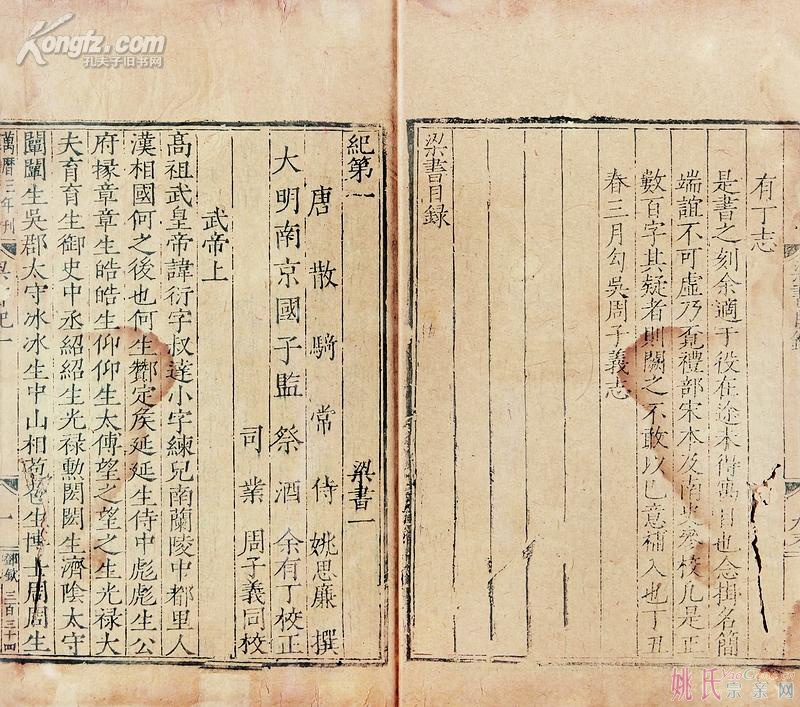 Kongfz.com
孔夫子旧书网
有丁志
是書之刻余適于役在途未得寓目也念掛名簡
端誼不可虛乃覔禮部宋本及南史叅校凡是正
數百字其疑者則闕之不敢以己意補入也丁丑
春三月勾吳周子義志
梁書目錄
紀第一 梁書一
唐散騎常侍姚思廉撰
大明南京國子監祭酒余有丁校正
司業周子義同校
武帝上
高祖武皇帝諱衍字叔達小字練兒南蘭陵中都里人
漢相國何之後也何生酇定侯延延生侍中彪彪生公
府掾章章生皓皓生仰仰生太傅望之望之生光禄大
夫育育生御史中丞紹紹生光禄勲閎閎生濟陰太守
闡闡生吳郡太守冰冰生中山相苞苞生博士周周生
萬曆三年刊
一
三百三十四
姚氏宗亲网